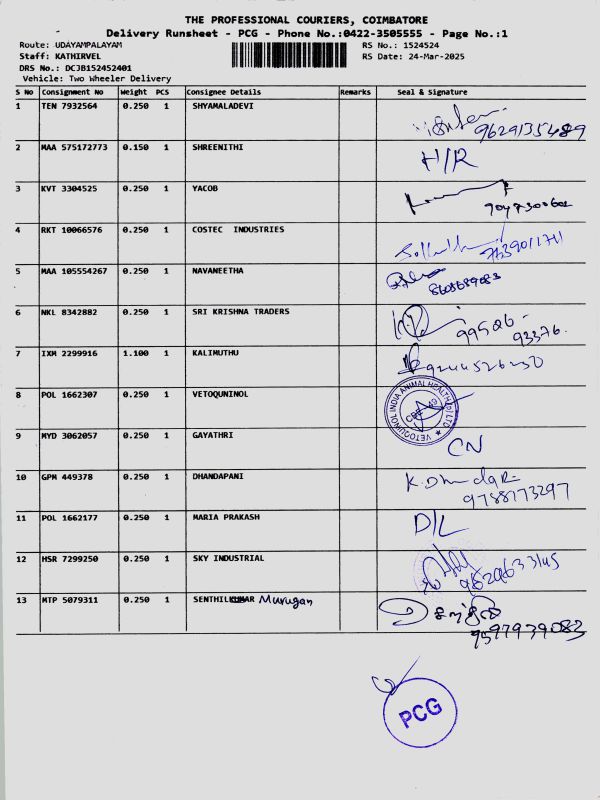 THE PROFESSIONAL COURIERS, COIMBATORE
Delivery Runsheet - PCG - Phone No.:0422-3505555 - Page No.:1
Route: UDAYAMPALAYAM RS No.: 1524524
Staff: KATHIRVEL RS Date: 24-Mar-2025
DRS No.: DCJB152452401
Vehicle: Two Wheeler Delivery
S No Consignment No Weight PCS Consignee Details Remarks Seal & Signature
1 TEN 7932564 0.250 1 SHYAMALADEVI
9629135489
2 MAA 575172773 0.150 1 SHREENITHI H/R
3 KVT 3304525 0.250 1 YACOB
9047300602
4 RKT 10066576 0.250 1 COSTEC INDUSTRIES
7639011711
5 MAA 105554267 0.250 1 NAVANEETHA
8608689083
6 NKL 8342882 0.250 1 SRI KRISHNA TRADERS
99526-
93376.
7 IXM 2299916 1.100 1 KALIMUTHU
9244526230
8 POL 1662307 0.250 1 VETOQUNINOL
VETOQUINOL INDIA ANIMAL HEALTH (P) LTD
9 MYD 3062057 0.250 1 GAYATHRI
CN
10 GPM 449378 0.250 1 DHANDAPANI
9788773297
11 POL 1662177 0.250 1 MARIA PRAKASH D/L
12 HSR 7299250 0.250 1 SKY INDUSTRIAL
9629633145
13 MTP 5079311 0.250 1 SENTHILKUMAR Murugan
செந்தில்
9597939083
PCG